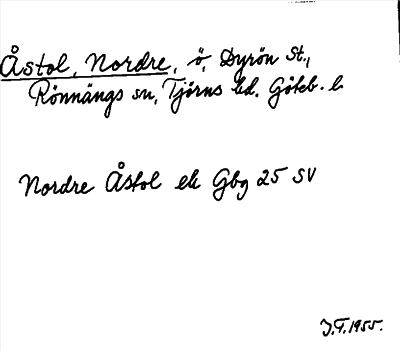 Åstol, Nordre, ö, Dyrön St.,
Rönnängs sn, Tjörns hd. Göteb. l.
Nordre Åstol ek Gbg 25 SV
J.T. 1955.